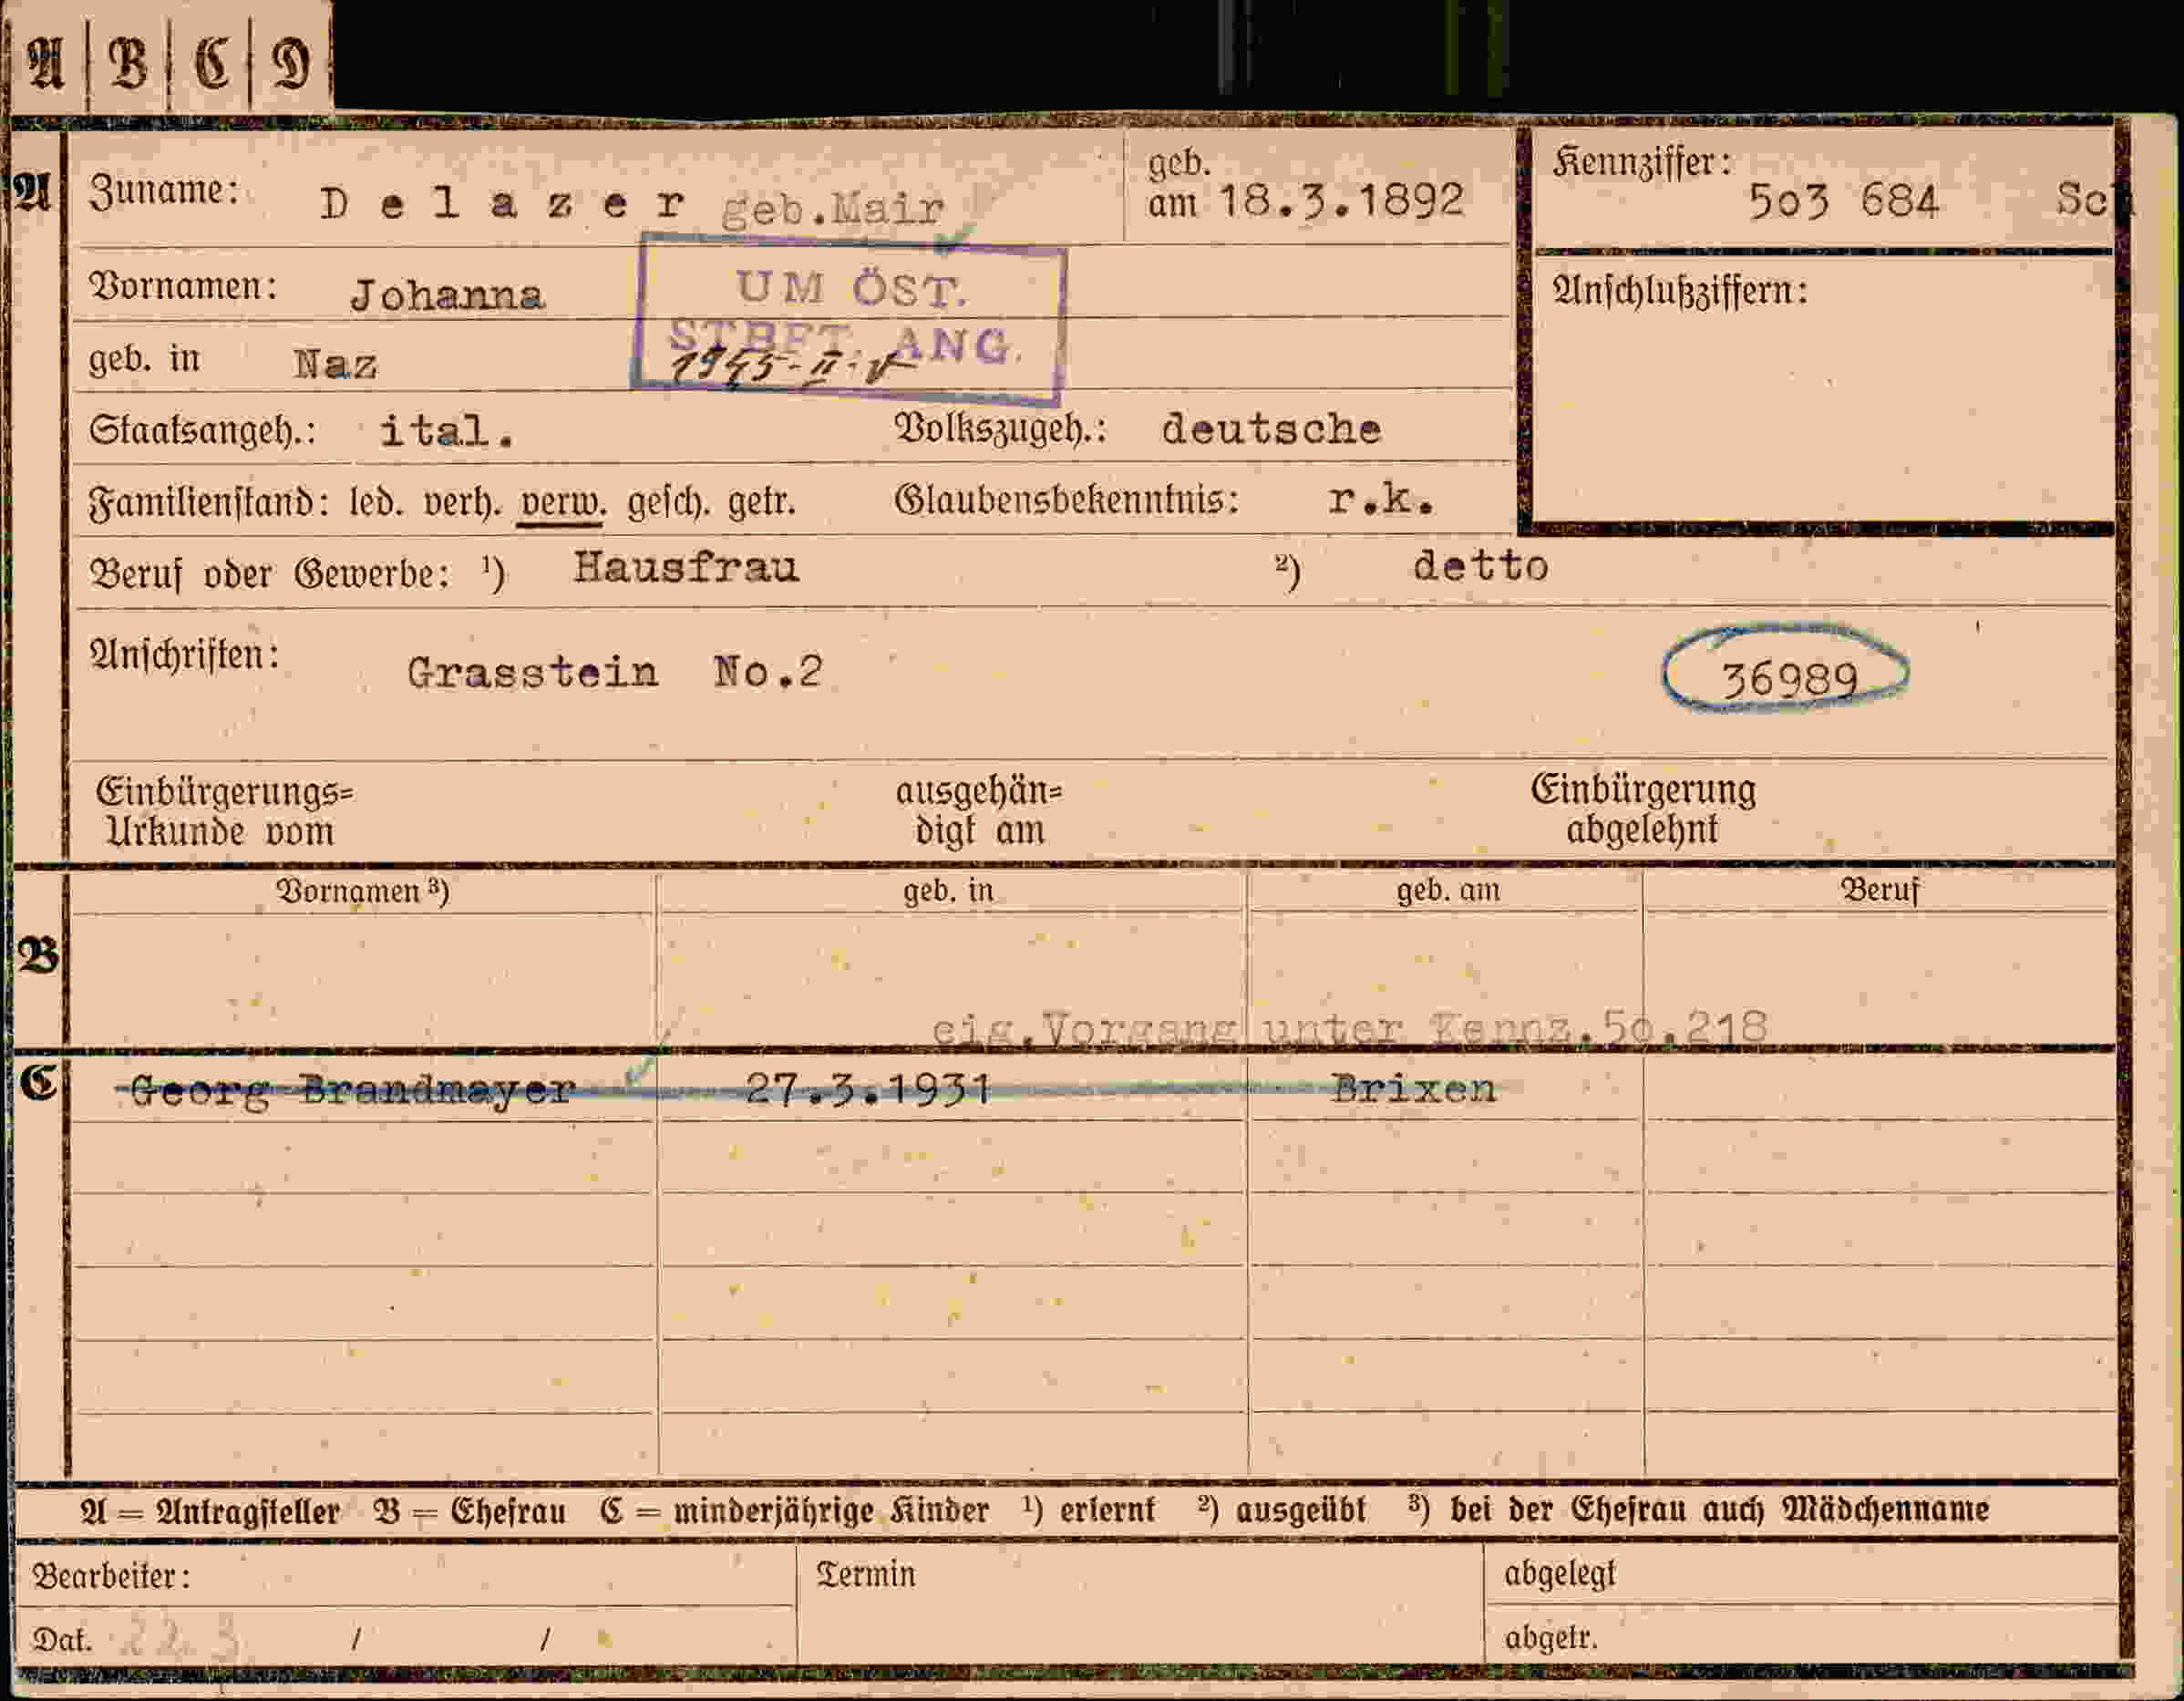 A | B | C | D
A Zuname: Delazer geb.Mair geb. am 18.3.1892 Kennziffer: 503 684 Sch
Vornamen: Johanna UM ÖST. Anschlußziffern:
STBFT ANG.
geb. in Naz 1955-II-
Staatsangeh.: ital. Volkszugeh.: deutsche
Familienstand: led. verh. verw. gesch. getr. Glaubensbekenntnis: r.k.
Beruf oder Gewerbe: ¹) Hausfrau ²) detto
Anschriften: Grasstein No.2 36989
Einbürgerungs= ausgehän= Einbürgerung
Urkunde vom digt am abgelehnt
Vornamen ³) geb. in geb. am Beruf
B
eig.Vorgang unter Kennz.50.218
C Georg Brandmayer 27.3.1931 Brixen
A = Antragsteller B = Ehefrau C = minderjährige Kinder ¹) erlernt ²) ausgeübt ³) bei der Ehefrau auch Mädchenname
Bearbeiter: Termin abgelegt
Dat. 22.3. / / abgetr.